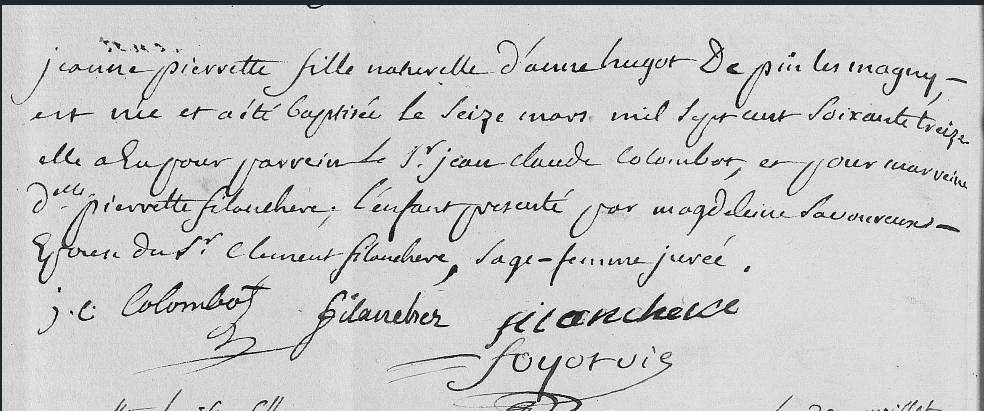 jeanne pierrette fille naturelle d'anne hugot De pin les magny,
est née et a été baptisée le seize mars mil sept cent soixante treize
elle a Eu pour parrein le Sr jean claude Colombot, et pour marreine
delle pierrette filanchere; l'enfant presenté par magdeleine Savoureux
Epouse du Sr Clement filanchere, sage-femme jurée.
j. c Colombot filancher filanchere
foyot vic